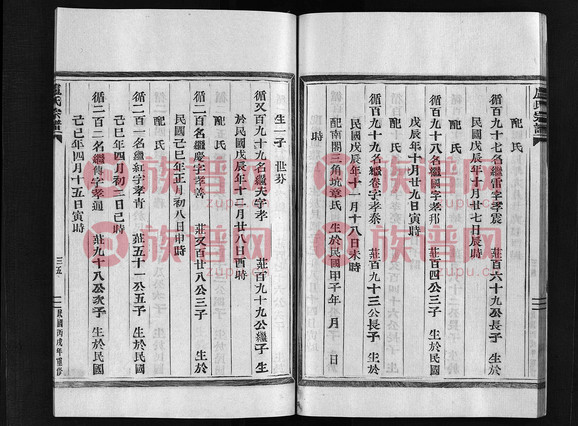 盧氏宗譜
循百九十七名繼雷字孝震 莊百六十九公長子 生於
民國戊辰年十月廿七日辰時
配 氏
循百九十八名繼國字孝邦 莊百四公三子 生於民國
戊辰年十月廿九日寅時
配 氏
循百九十九名繼卷字孝泰 莊百九十三公長子 生於
民國戊辰年十一月十八日未時
配南閣三角坑章氏 生於民國甲子年 月 日
時
生一子 世芬
循又百九十九名繼天字孝 莊百九十九公繼子 生
於民國戊辰年十二月廿八日酉時
配 氏
循二百名繼慶字孝善 莊又百廿八公三子 生於
民國己巳年正月初八日申時
配 氏
循二百一名繼紅字孝青 莊五十一公五子 生於民國
己巳年四月初二日巳時
配 氏
循二百二名繼傳字孝通 莊九十八公次子 生於民國
己巳年四月十五日寅時
盧氏宗譜
三五
民國丙戌年重修
族谱网
zupu.cn
族谱网
zupu.cn